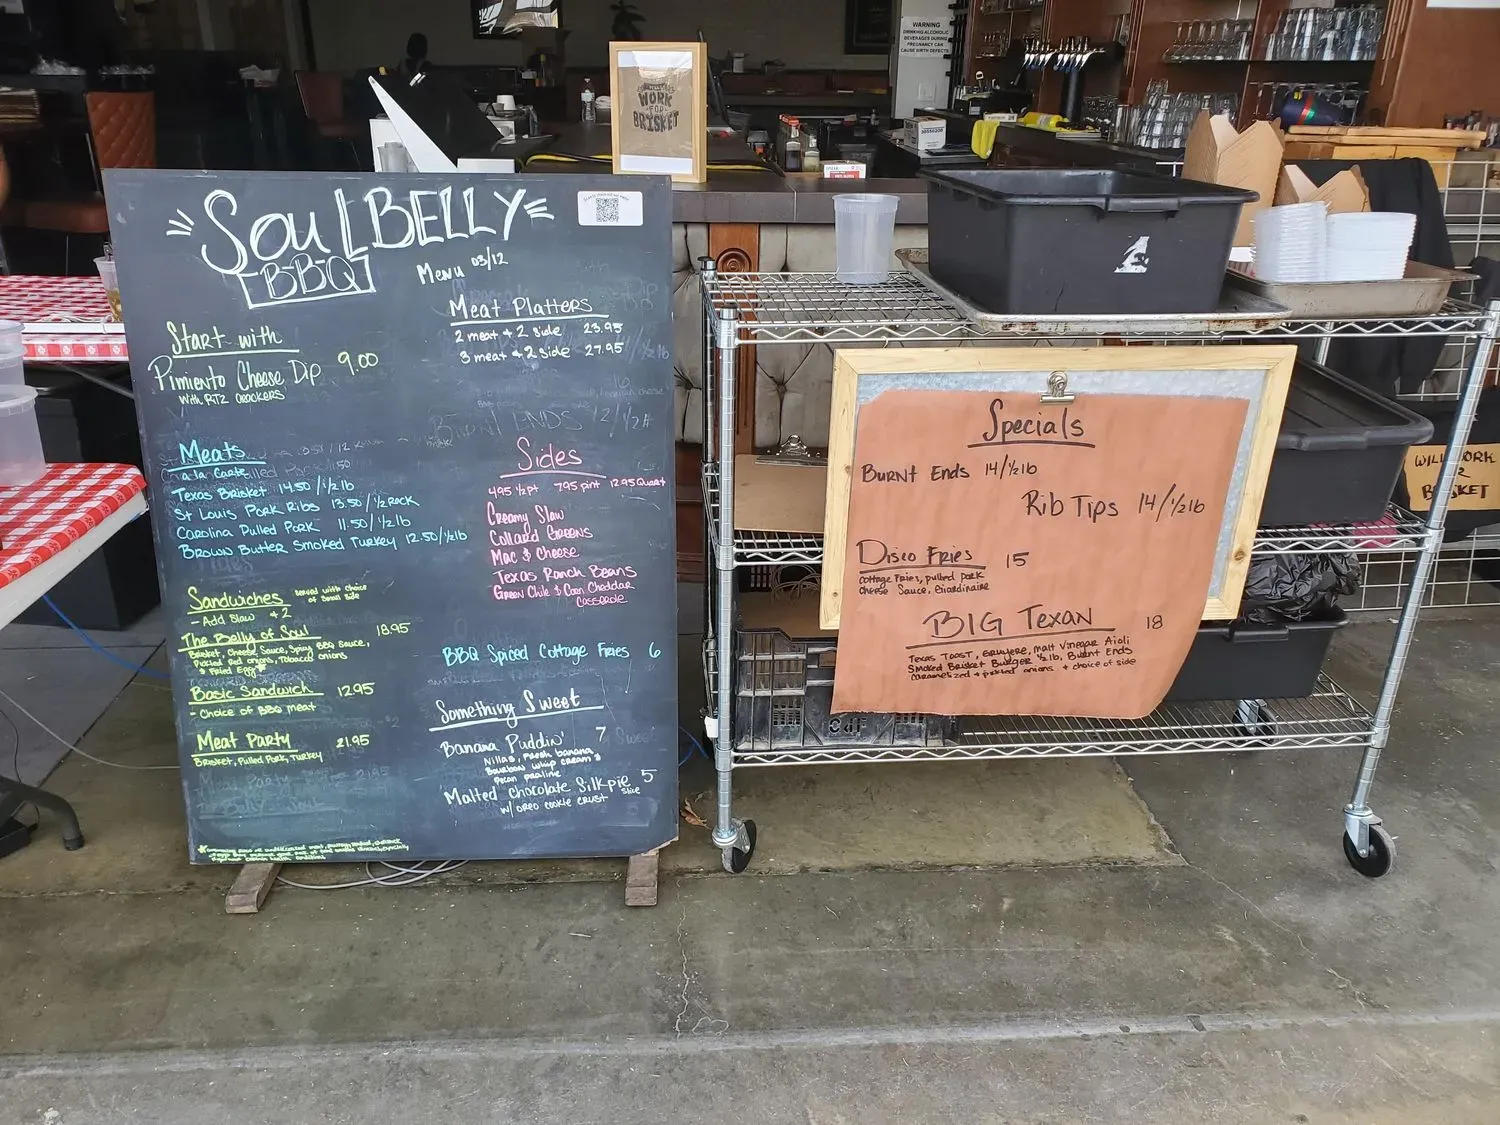 WARNING
DRINKING ALCOHOLIC
BEVERAGES DURING
PREGNANCY CAN
CAUSE BIRTH DEFECTS
WORK
FOR
BRISKET
SOUL BELLY
B-B-Q
Menu 03/12
Start with
Pimiento Cheese Dip 9.00
with RTZ crackers
Meat Platters
2 meat + 2 side 23.95
3 meat + 2 side 27.95
BURNT ENDS 12/½#
Meats
ala carte
Texas Brisket 14.50/½lb
St Louis Pork Ribs 13.50/½ Rack
Carolina Pulled Pork 11.50/½lb
Brown Butter Smoked Turkey 12.50/½lb
Sides
4.95 ½pt 7.95 pint 12.95 Quart
Creamy Slaw
Collard Greens
Mac & Cheese
Texas Ranch Beans
Green Chile & Corn Cheddar
Casserole
Sandwiches served with choice
of small side
- Add Slaw +2
The Belly of Soul 18.95
Brisket, Cheese Sauce, Spicy BBQ Sauce,
Pickled red onions, Tobacco onions
& Fried Egg*
Basic Sandwich 12.95
- Choice of BBQ meat
Meat Party 21.95
Brisket, Pulled Pork, Turkey
BBQ Spiced Cottage Fries 6
Something Sweet
Banana Puddin' 7
Nillas, fresh banana,
Bourbon whip cream &
Pecan praline
Malted Chocolate Silk pie 5
slice
w/ oreo cookie crust
Specials
Burnt Ends 14/½lb
Rib Tips 14/½lb
Disco Fries 15
Cottage Fries, pulled pork
Cheese Sauce, Giardinaire
BIG TEXAN 18
Texas Toast, Gruyere, malt Vinegar Aioli
Smoked Brisket Burger ½ lb, Burnt Ends
Caramelized + pickled onions + choice of side
WILL WORK
BRISKET